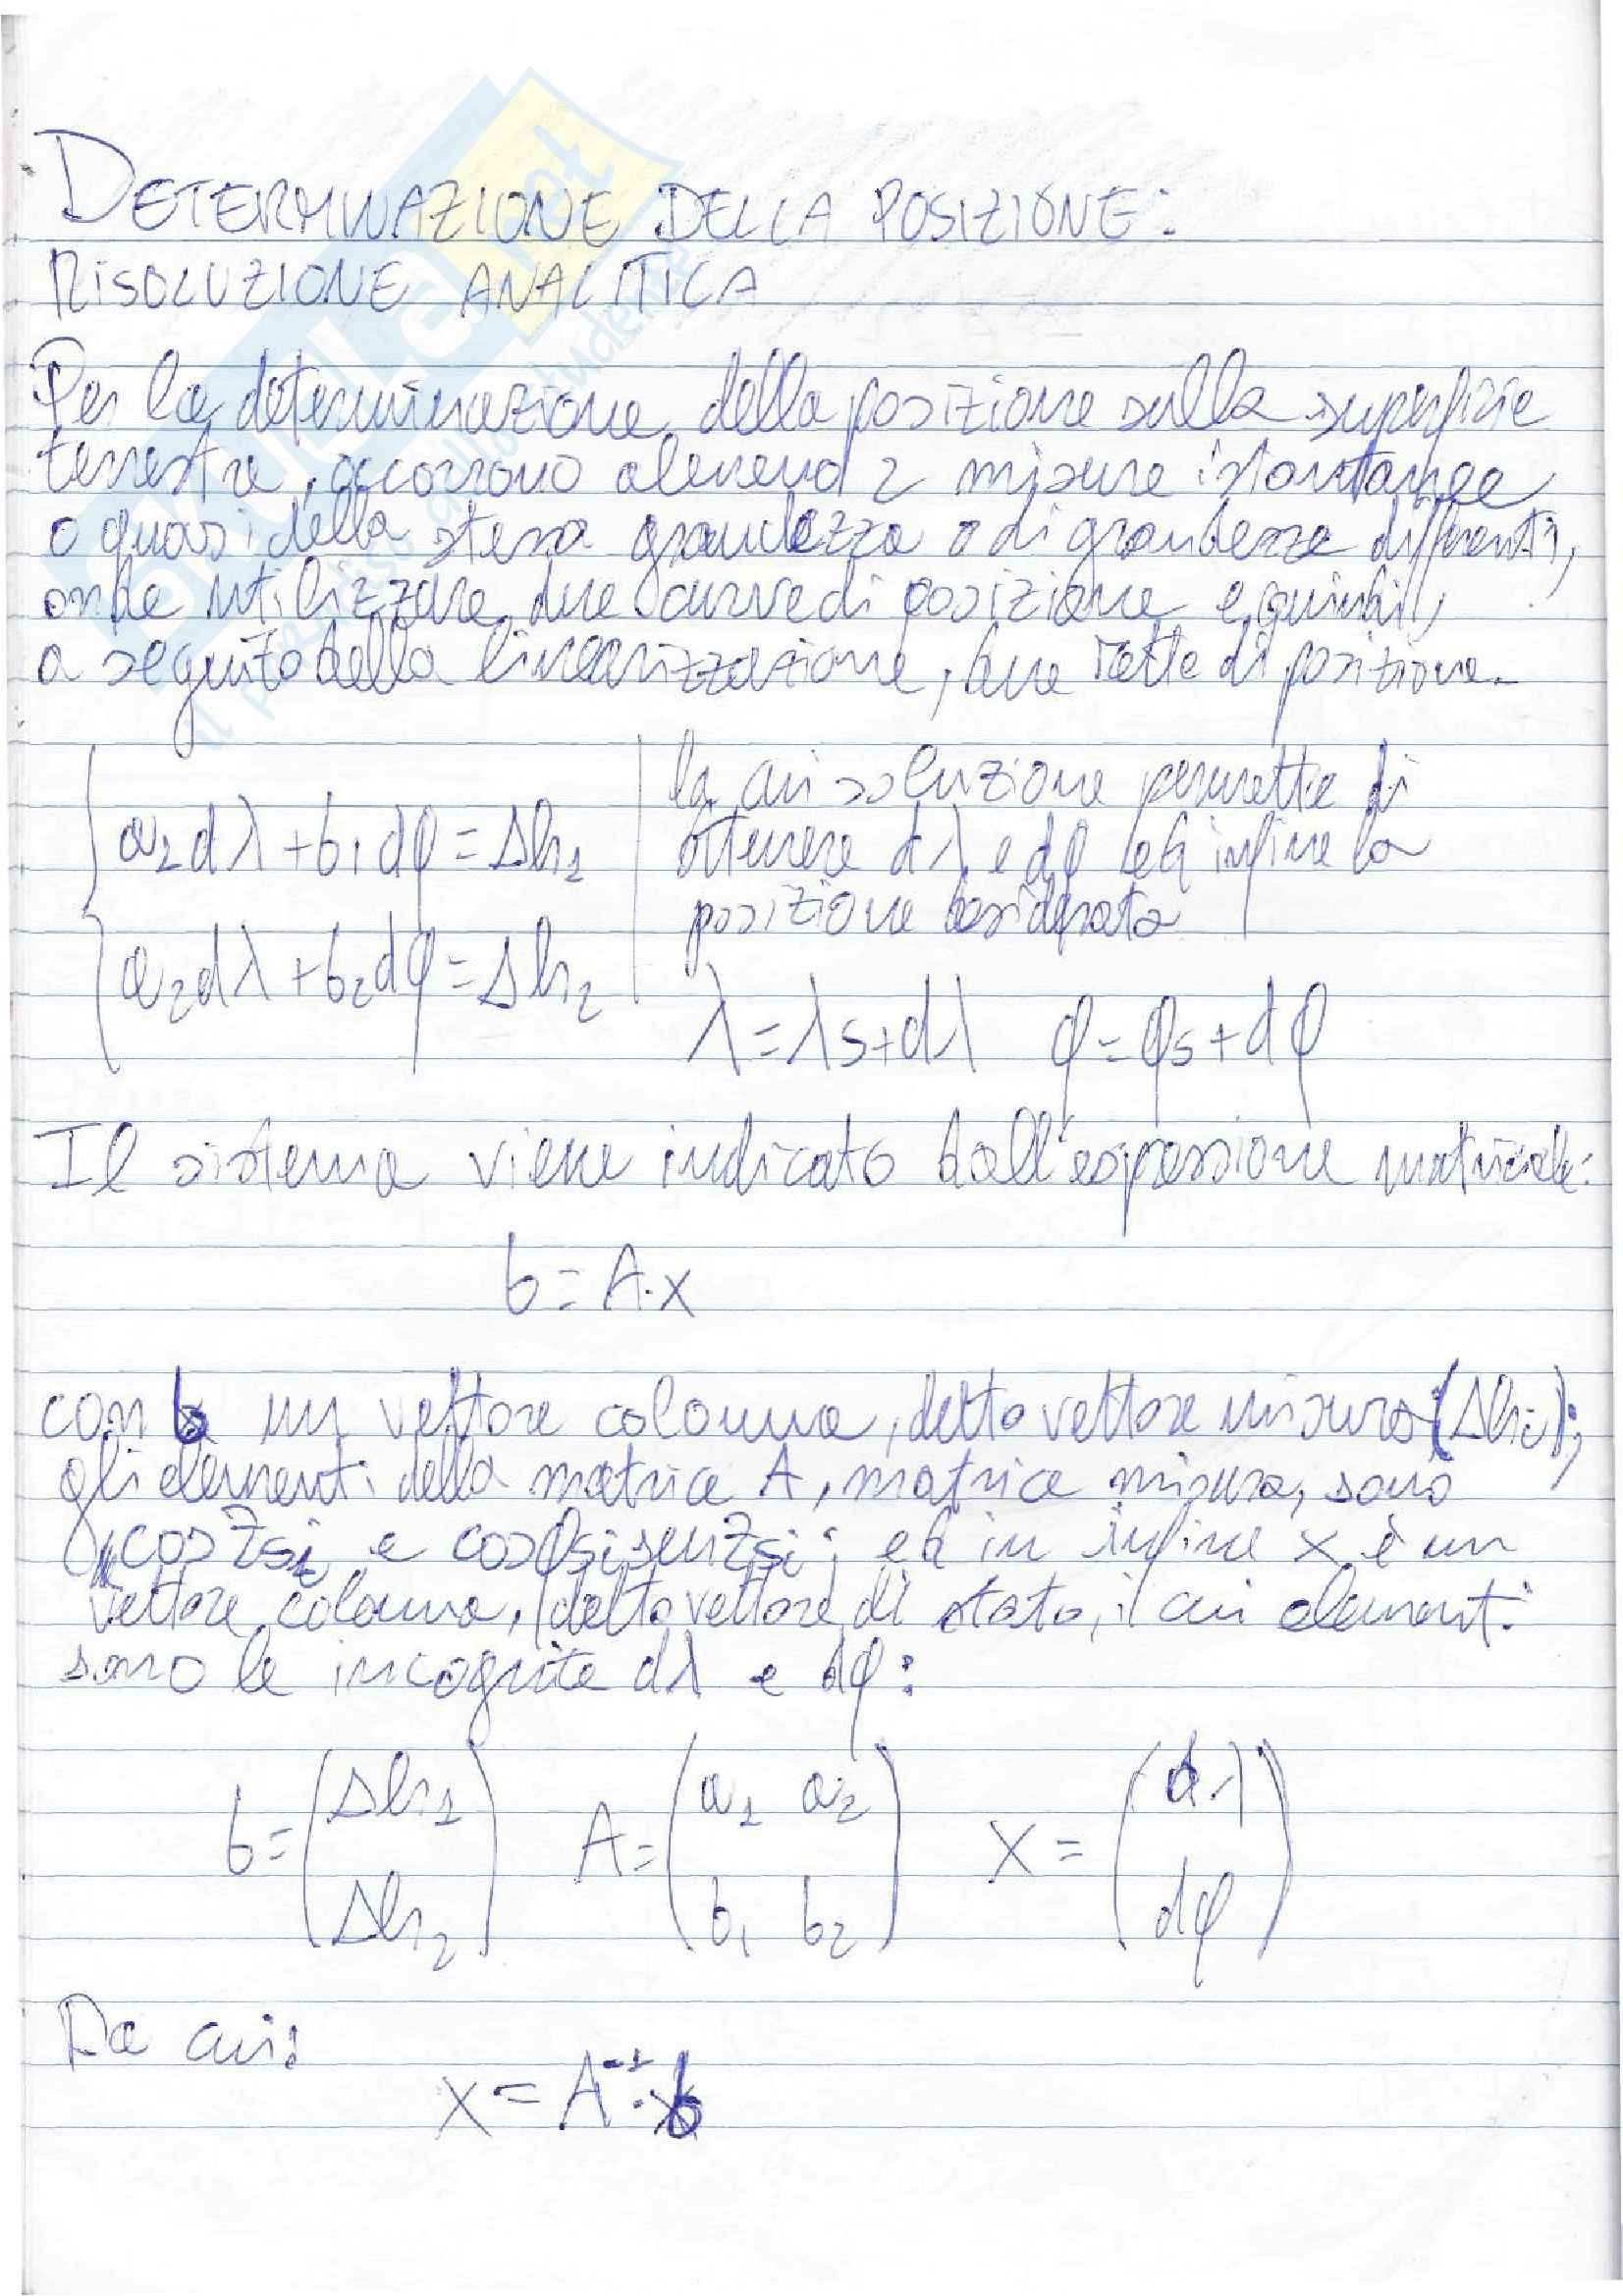 DETERMINAZIONE DELLA POSIZIONE:
RISOLUZIONE ANALITICA
Per la determinazione della posizione sulla superficie
terrestre, occorrono almeno 2 misure istantanee
o quasi della stessa grandezza o di grandezze differenti,
onde utilizzare due curve di posizione e quindi,
a seguito della linearizzazione, due rette di posizione.
a₂dλ+b₁dφ=Δh₁
a₂dλ+b₂dφ=Δh₂
la cui soluzione permette di
ottenere dλ e dφ ed infine la
posizione desiderata
λ=λs+dλ φ=φs+dφ
Il sistema viene indicato dall'espressione matriciale:
b=A·x
con b un vettore colonna, detto vettore misura (Δhi);
gli elementi della matrice A, matrice misura, sono
cosZsi e cosφsi senZsi; ed in infine x è un
vettore colonna, detto vettore di stato, i cui elementi
sono le incognite dλ e dφ:
b=(Δh₁ A=(a₁ a₂ x=(dλ
Δh₂) b₁ b₂) dφ)
Da cui:
x=A⁻¹·b
skuola.net
il paradiso dello studente